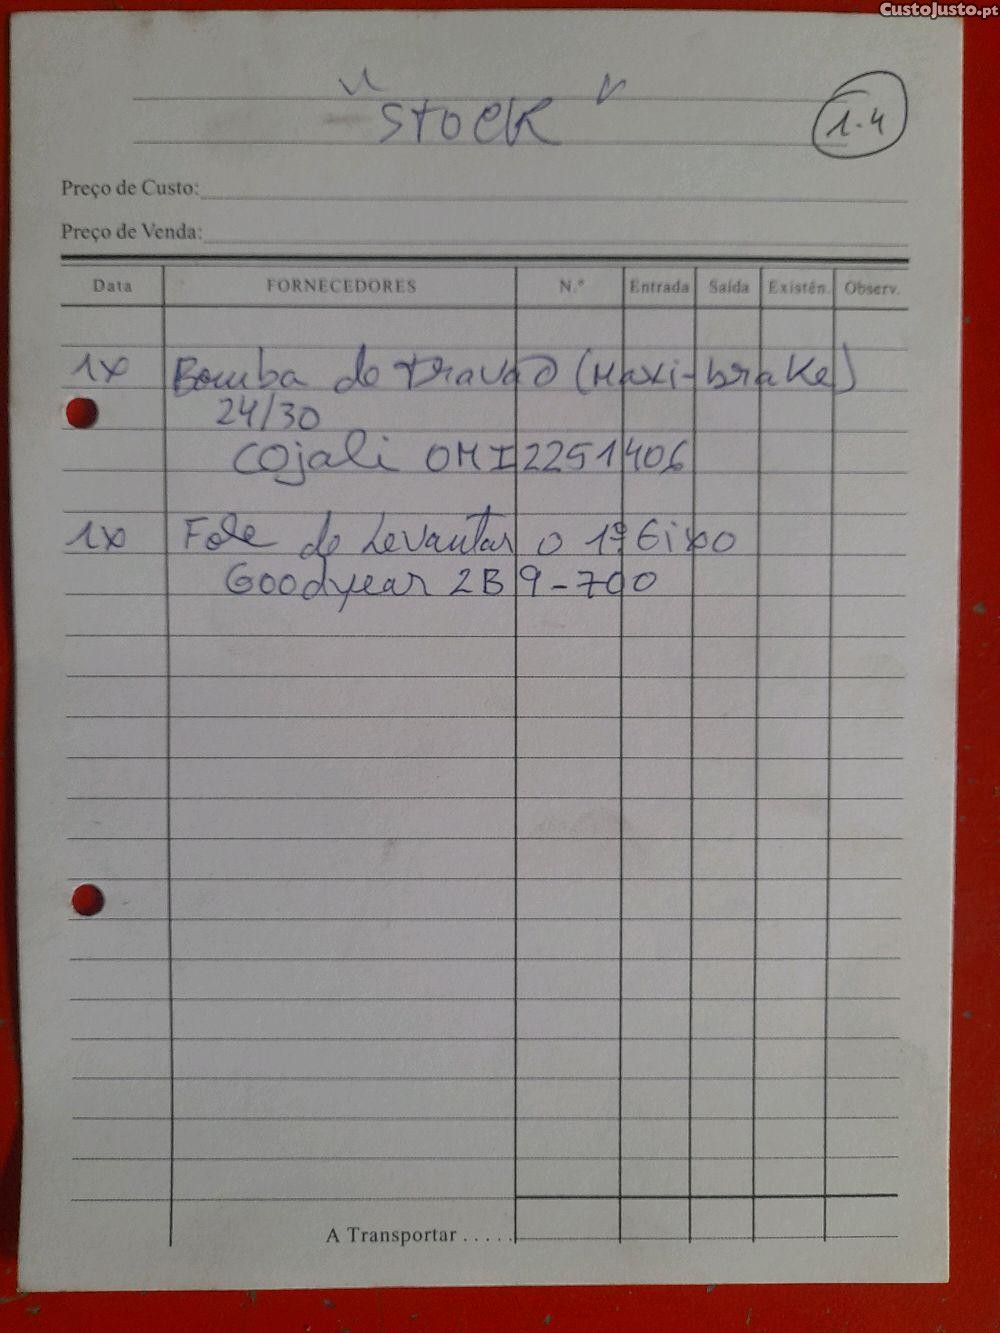 CustoJusto.pt
"STOCK"
1.4
Preço de Custo:
Preço de Venda:
Data FORNECEDORES N.º Entrada Saída Existên. Observ.
1x Bomba de Travão (Maxi-brake)
24/30
Cojali OMI2251406
1x Fole de Levantar o 1º Eixo
Goodyear 2B9-700
A Transportar .....